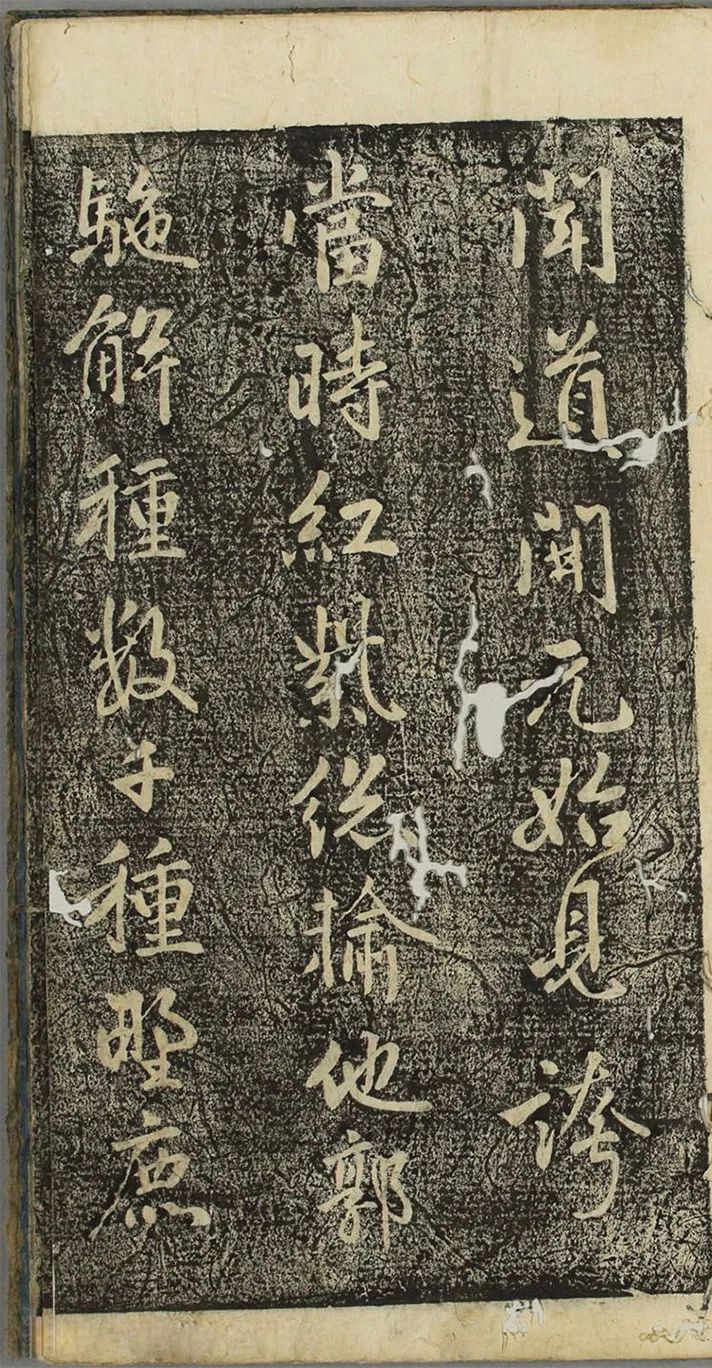 聞道開元始見誇
當時紅紫從掄他郭
駞解種數千種野鹿